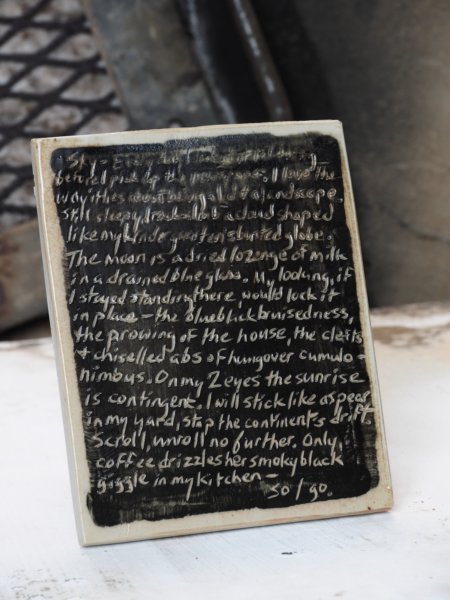 Sky -
before I pick up the newspaper. I love the
way it
still sleepy, to a cloud shaped
like my kindergarten's buried globe.
The moon is a dried lozenge of milk
in a drained blue glass. My looking, if
I stayed standing there would lock it
in place - the blueblack bruisedness,
the prowing of the house, the clefts
+ chiselled abs of hungover cumulo-
nimbus. On my 2 eyes the sunrise
is contingent. I will stick like a spear
in my yard, stop the continents drift.
Scroll, unroll no further. Only
coffee drizzles her smoky black
giggle in my kitchen -
so I go.